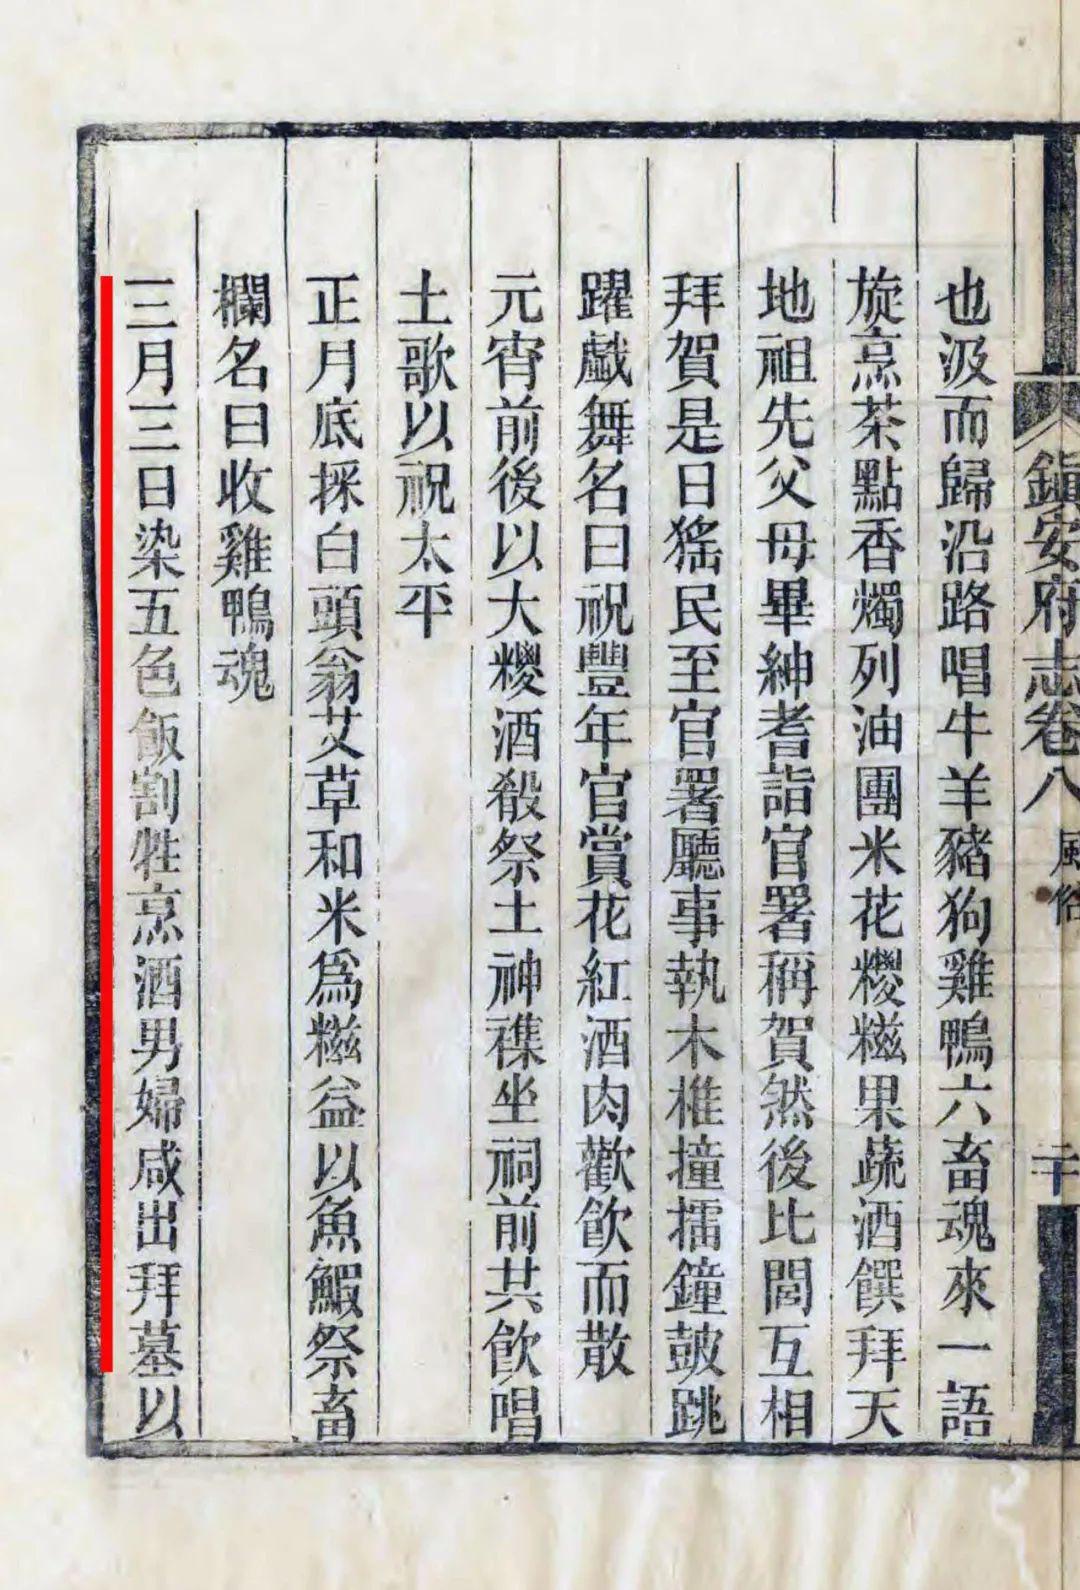 鎮安府志卷八 風俗 二十
也汲而歸沿路唱牛羊豬狗雞鴨六畜魂來一語
旋烹茶點香燭列油團米花糭糍果蔬酒饌拜天
地祖先父母畢紳耆詣官署稱賀然後比閭互相
拜賀是日猺民至官署廳事執木椎撞擂鐘皷跳
躍戯舞名曰祝豐年官賞花紅酒肉歡飲而散
元宵前後以大糭酒殽祭土神襍坐祠前共飲唱
土歌以祝太平
正月底採白頭翁艾草和米爲糍益以魚鰕祭畜
欄名曰收雞鴨魂
三月三日染五色飯割牲烹酒男婦咸出拜墓以